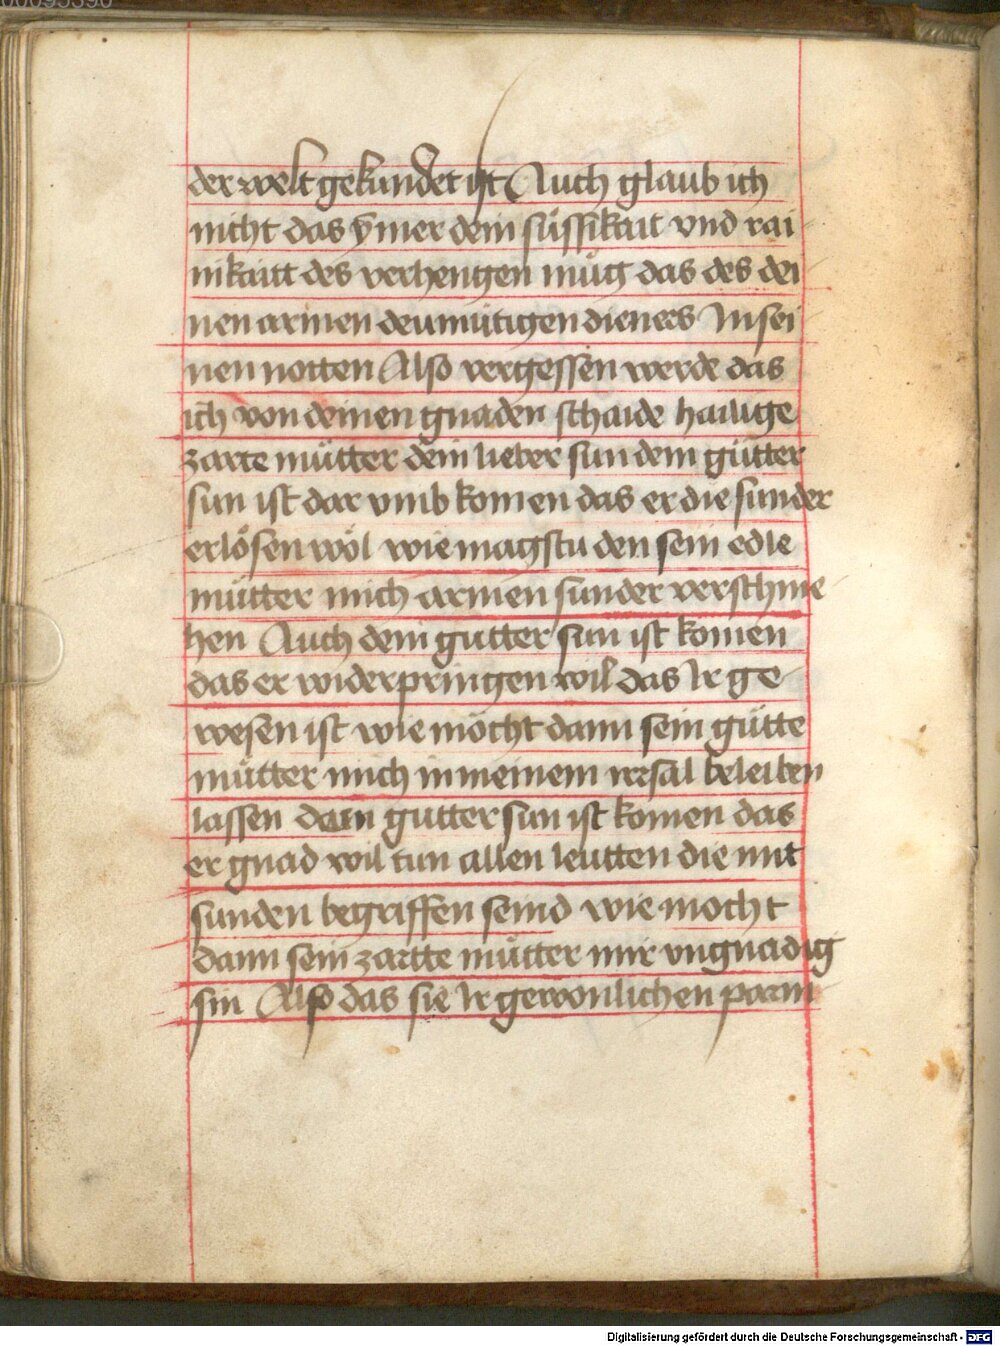 der welt gekundet ist Auch glaub ich
nicht das ÿmer dein süssikait vnd rai
nikaitt des verhengen müg das des dei
nen armen deumütigen dieners In sei
nen notten Also vergessen werde das
ich von deinen gnaden schaide hailige
zarte mütter dein lieber sun dem gütter
sun ist dar vmb komen das er die sunder
erlösen wöl wie magstu den sein edle
mütter mich armen sunder verschme
hen Auch dein gutter sun ist komen
das er widerpringen wil das Ir ge
wesen ist wie möcht dann sein gütte
mütter mich in meinem irrsal beleiben
lassen dein gutter sun ist komen das
er gnad wil tun allen leutten die mit
sunden begriffen seind wie mocht
dann sein zartte mütter mir vngnadig
sin Also das sie Ir gewonlichen parm
Digitalisierung gefördert durch die Deutsche Forschungsgemeinschaft - DFG